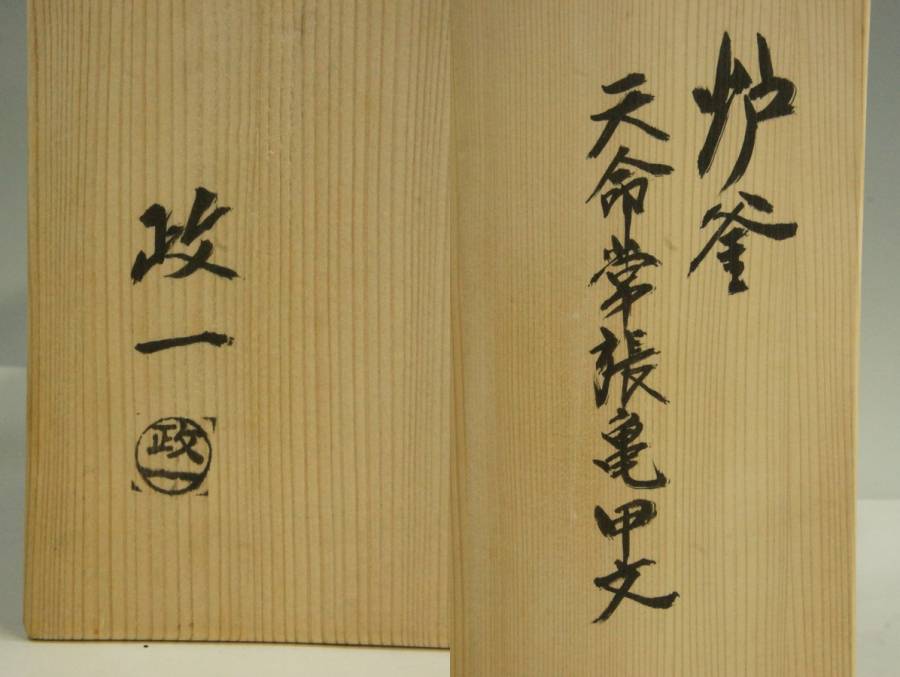 炉釜
天命常張亀甲文
政一
政一